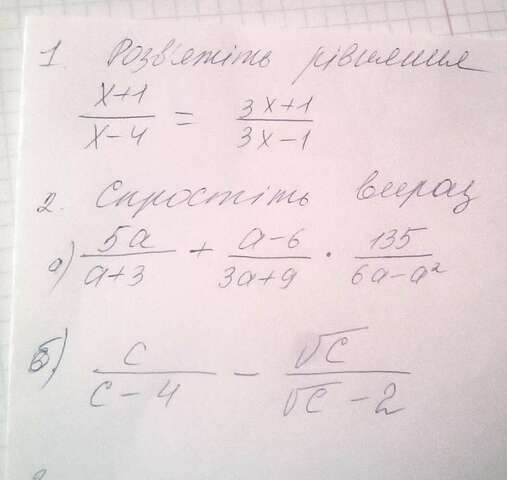 1. Розв'яжіть рівняння
x+1/x-4 = 3x+1/3x-1
2. Спростіть вираз
а) 5a/a+3 + a-6/3a+9 · 135/6a-a²
б) c/c-4 - √c/√c-2